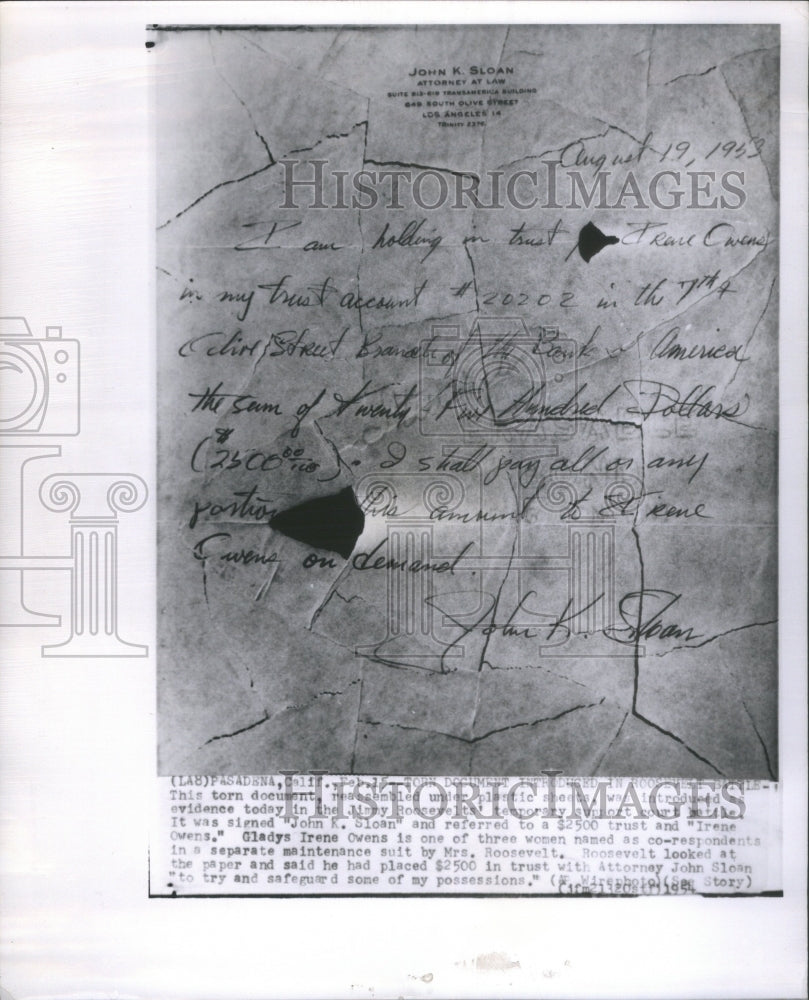 JOHN K. SLOAN
ATTORNEY AT LAW
SUITE 613-619 TRANSAMERICA BUILDING
649 SOUTH OLIVE STREET
LOS ANGELES 14
TRINITY 2376
August 19, 1953
I am holding in trust Irene Owens
in my trust account #20202 in the 7th &
Olive Street Branch of the Bank of America
the sum of Twenty Five Hundred Dollars
($2500 00/100). I shall pay all or any
portion this amount to Irene
Owens on demand.
John K. Sloan
HISTORIC IMAGES
HISTORIC IMAGES
(LA8) PASADENA, Calif., Feb. 15--TORN DOCUMENT INTRODUCED IN ROOSEVELT
This torn document, reassembled under plastic sheets, was introduced
evidence today in the Jimmy Roosevelts' temporary support court
It was signed "John K. Sloan" and referred to a $2500 trust and "Irene
Owens." Gladys Irene Owens is one of three women named as co-respondents
in a separate maintenance suit by Mrs. Roosevelt. Roosevelt looked at
the paper and said he had placed $2500 in trust with Attorney John Sloan
"to try and safeguard some of my possessions." (AP Wirephoto)(See Story)
1954